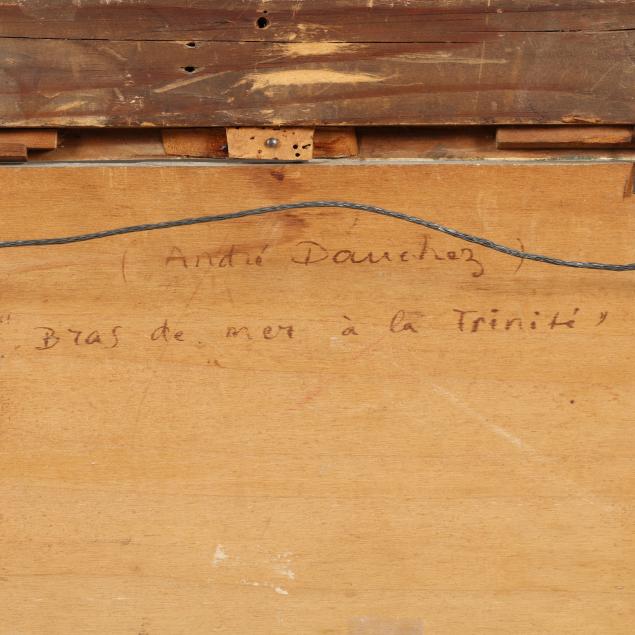 ( André Dauchez )
" Bras de mer à la Trinité "